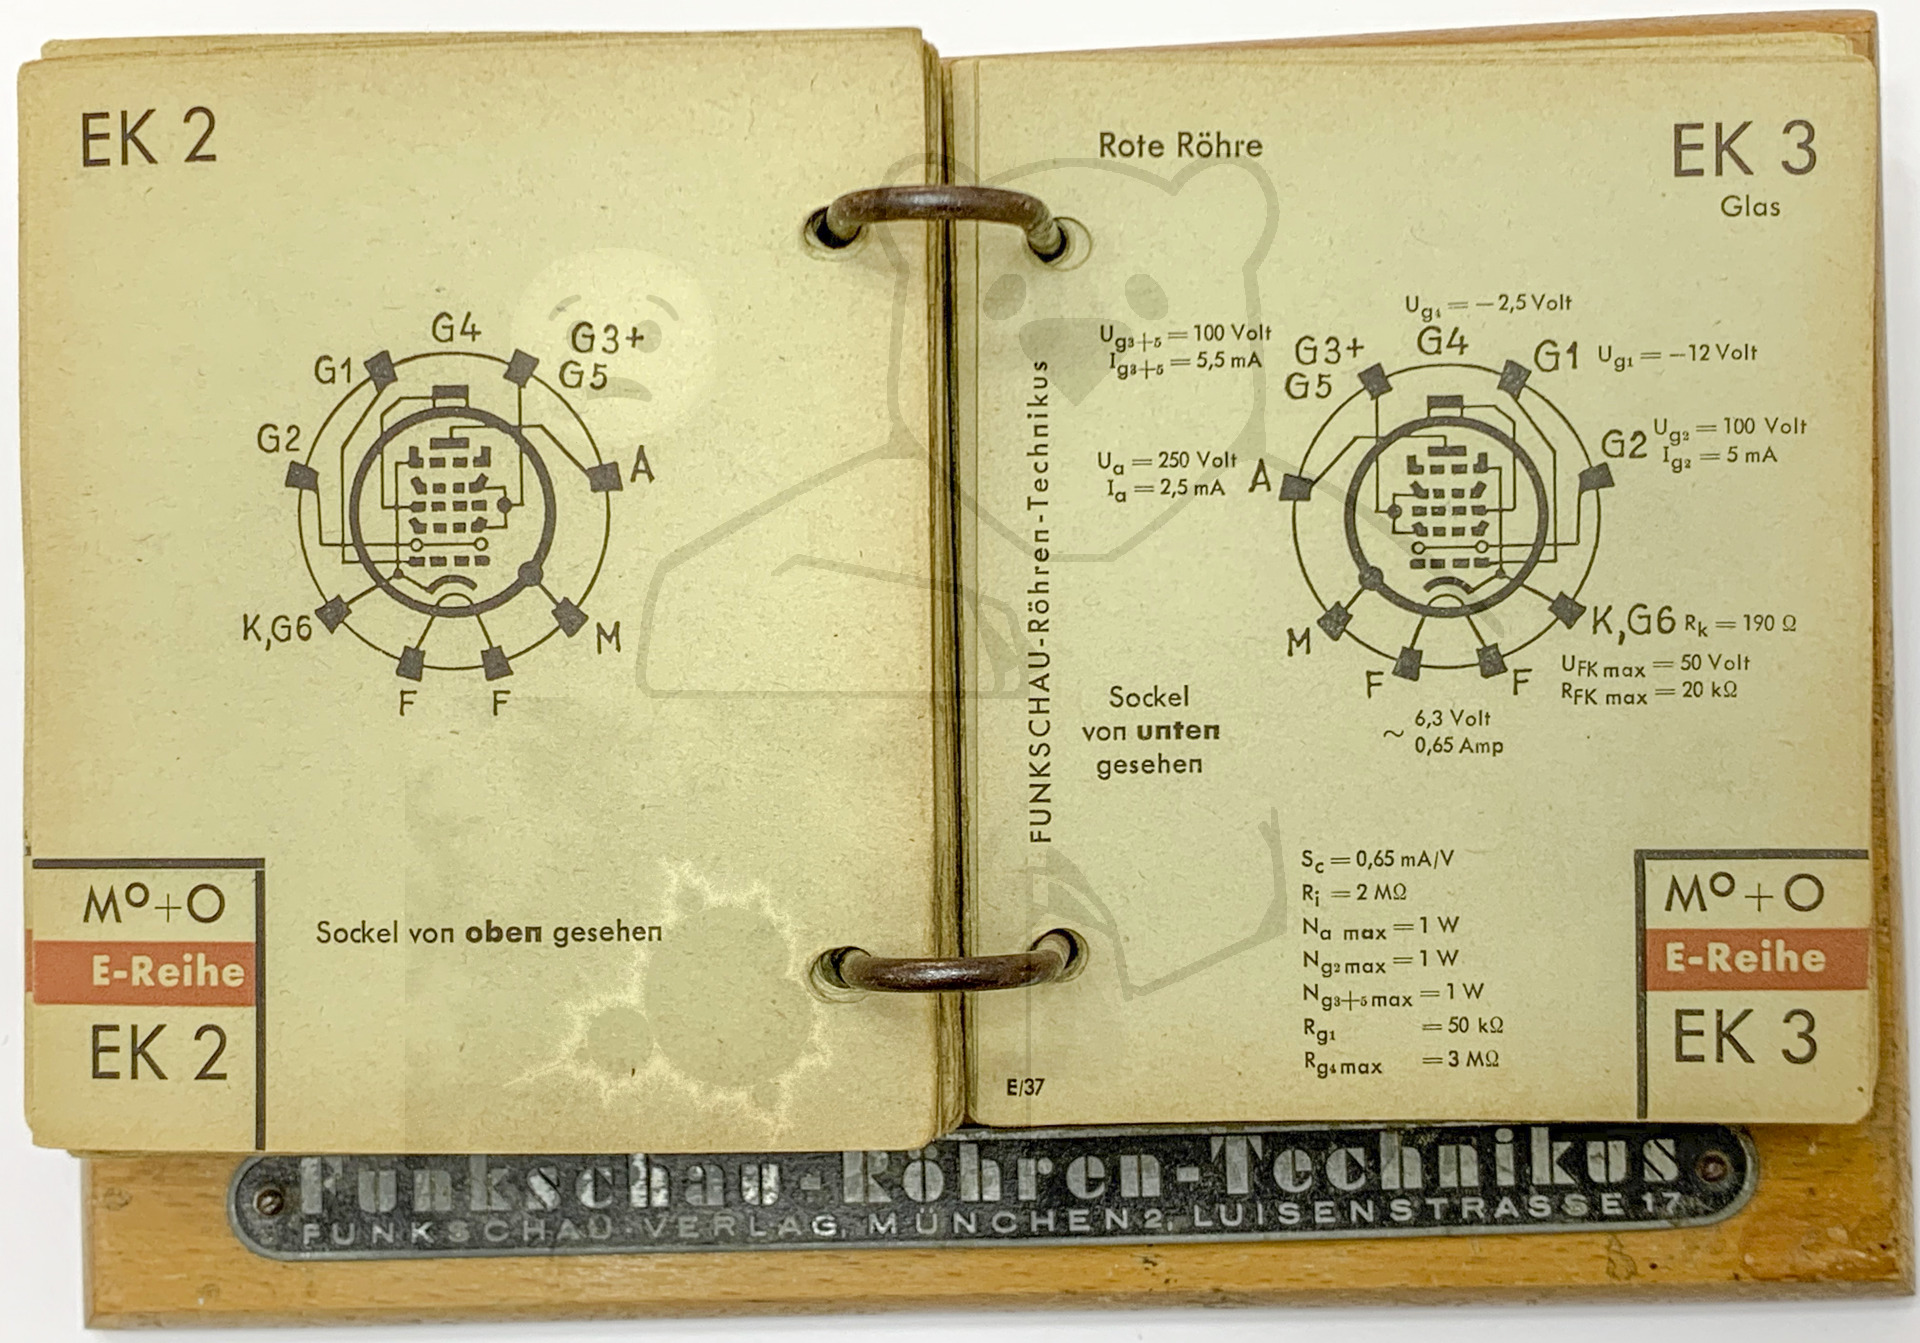 EK 2
G4
G3+
G5
G1
G2
A
K,G6
M
F
F
Mo+O
E-Reihe
EK 2
Sockel von oben gesehen
Rote Röhre
EK 3
Glas
FUNKSCHAU-Röhren-Technikus
Ug4 = − 2,5 Volt
Ug3+5 = 100 Volt
Ig3+5 = 5,5 mA
G3+
G5
G4
G1
Ug1 = −12 Volt
Ua = 250 Volt
Ia = 2,5 mA
A
G2
Ug2 = 100 Volt
Ig2 = 5 mA
M
F
F
K,G6
Rk = 190 Ω
UFK max = 50 Volt
RFK max = 20 kΩ
~ 6,3 Volt
0,65 Amp
Sockel
von unten
gesehen
Sc = 0,65 mA/V
Ri = 2 MΩ
Na max = 1 W
Ng2 max = 1 W
Ng3+5 max = 1 W
Rg1 = 50 kΩ
Rg4 max = 3 MΩ
E/37
Mo+O
E-Reihe
EK 3
Funkschau-Röhren-Technikus
FUNKSCHAU-VERLAG, MÜNCHEN 2, LUISENSTRASSE 17